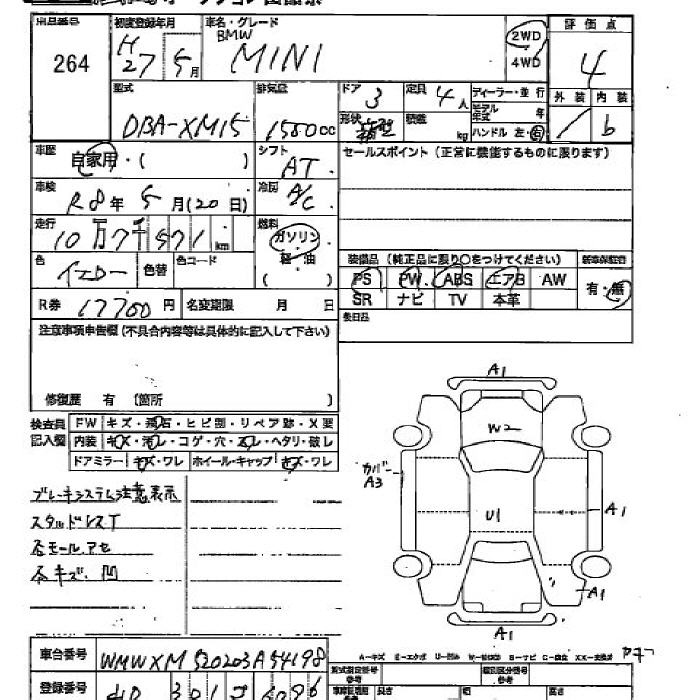 出品番号 初度登録年月 車名・グレード 評価点
264 H27 5月 BMW MINI 2WD 4WD 4
外装 内装
b
型式 排気量 ドア 3 定員 4人 ディーラー・並行
DBA-XM15 1500cc 形状 積載 kg モデル年式 年
ハンドル 左・右
車歴 自家用・( ) シフト AT セールスポイント (正常に機能するものに限ります)
車検 R8年 5月(20日) 冷房 A/C
走行 10万7千571km 燃料 ガソリン 軽・油 ( )
装備品 (純正品に限り○をつけてください) 新車保証書
色 イエロー 色替 色コード
PS PW ABS エアB AW 有・無
R券 17700円 名変期限 月 日 SR ナビ TV 本革
注意事項申告欄 (不具合内容等は具体的に記入して下さい) 後日品
修復歴 有 (箇所 )
検査員記入欄 FW キズ・飛石・ヒビ割・リペア跡・X要
内装 キズ・汚レ・コゲ・穴・スレ・ヘタリ・破レ
ドアミラー キズ・ワレ ホイール・キャップ キズ・ワレ
ブレーキシステム注意表示
スタッドレスT
各モール.アセ
各キズ.凹
A1
W2
カバー A3
U1
A1
A1
A1
車台番号 WMWXM520203A54198
登録番号 301
型式指定番号 類別区分番号
長さ 幅 高さ